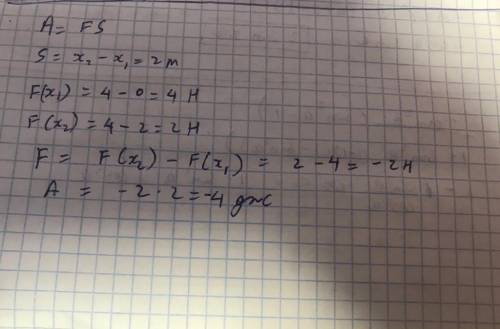 A = FS
S = x₂ - x₁ = 2 m
F(x₁) = 4 - 0 = 4 H
F(x₂) = 4 - 2 = 2 H
F = F(x₂) - F(x₁) = 2 - 4 = -2 H
A = -2 · 2 = -4 дж